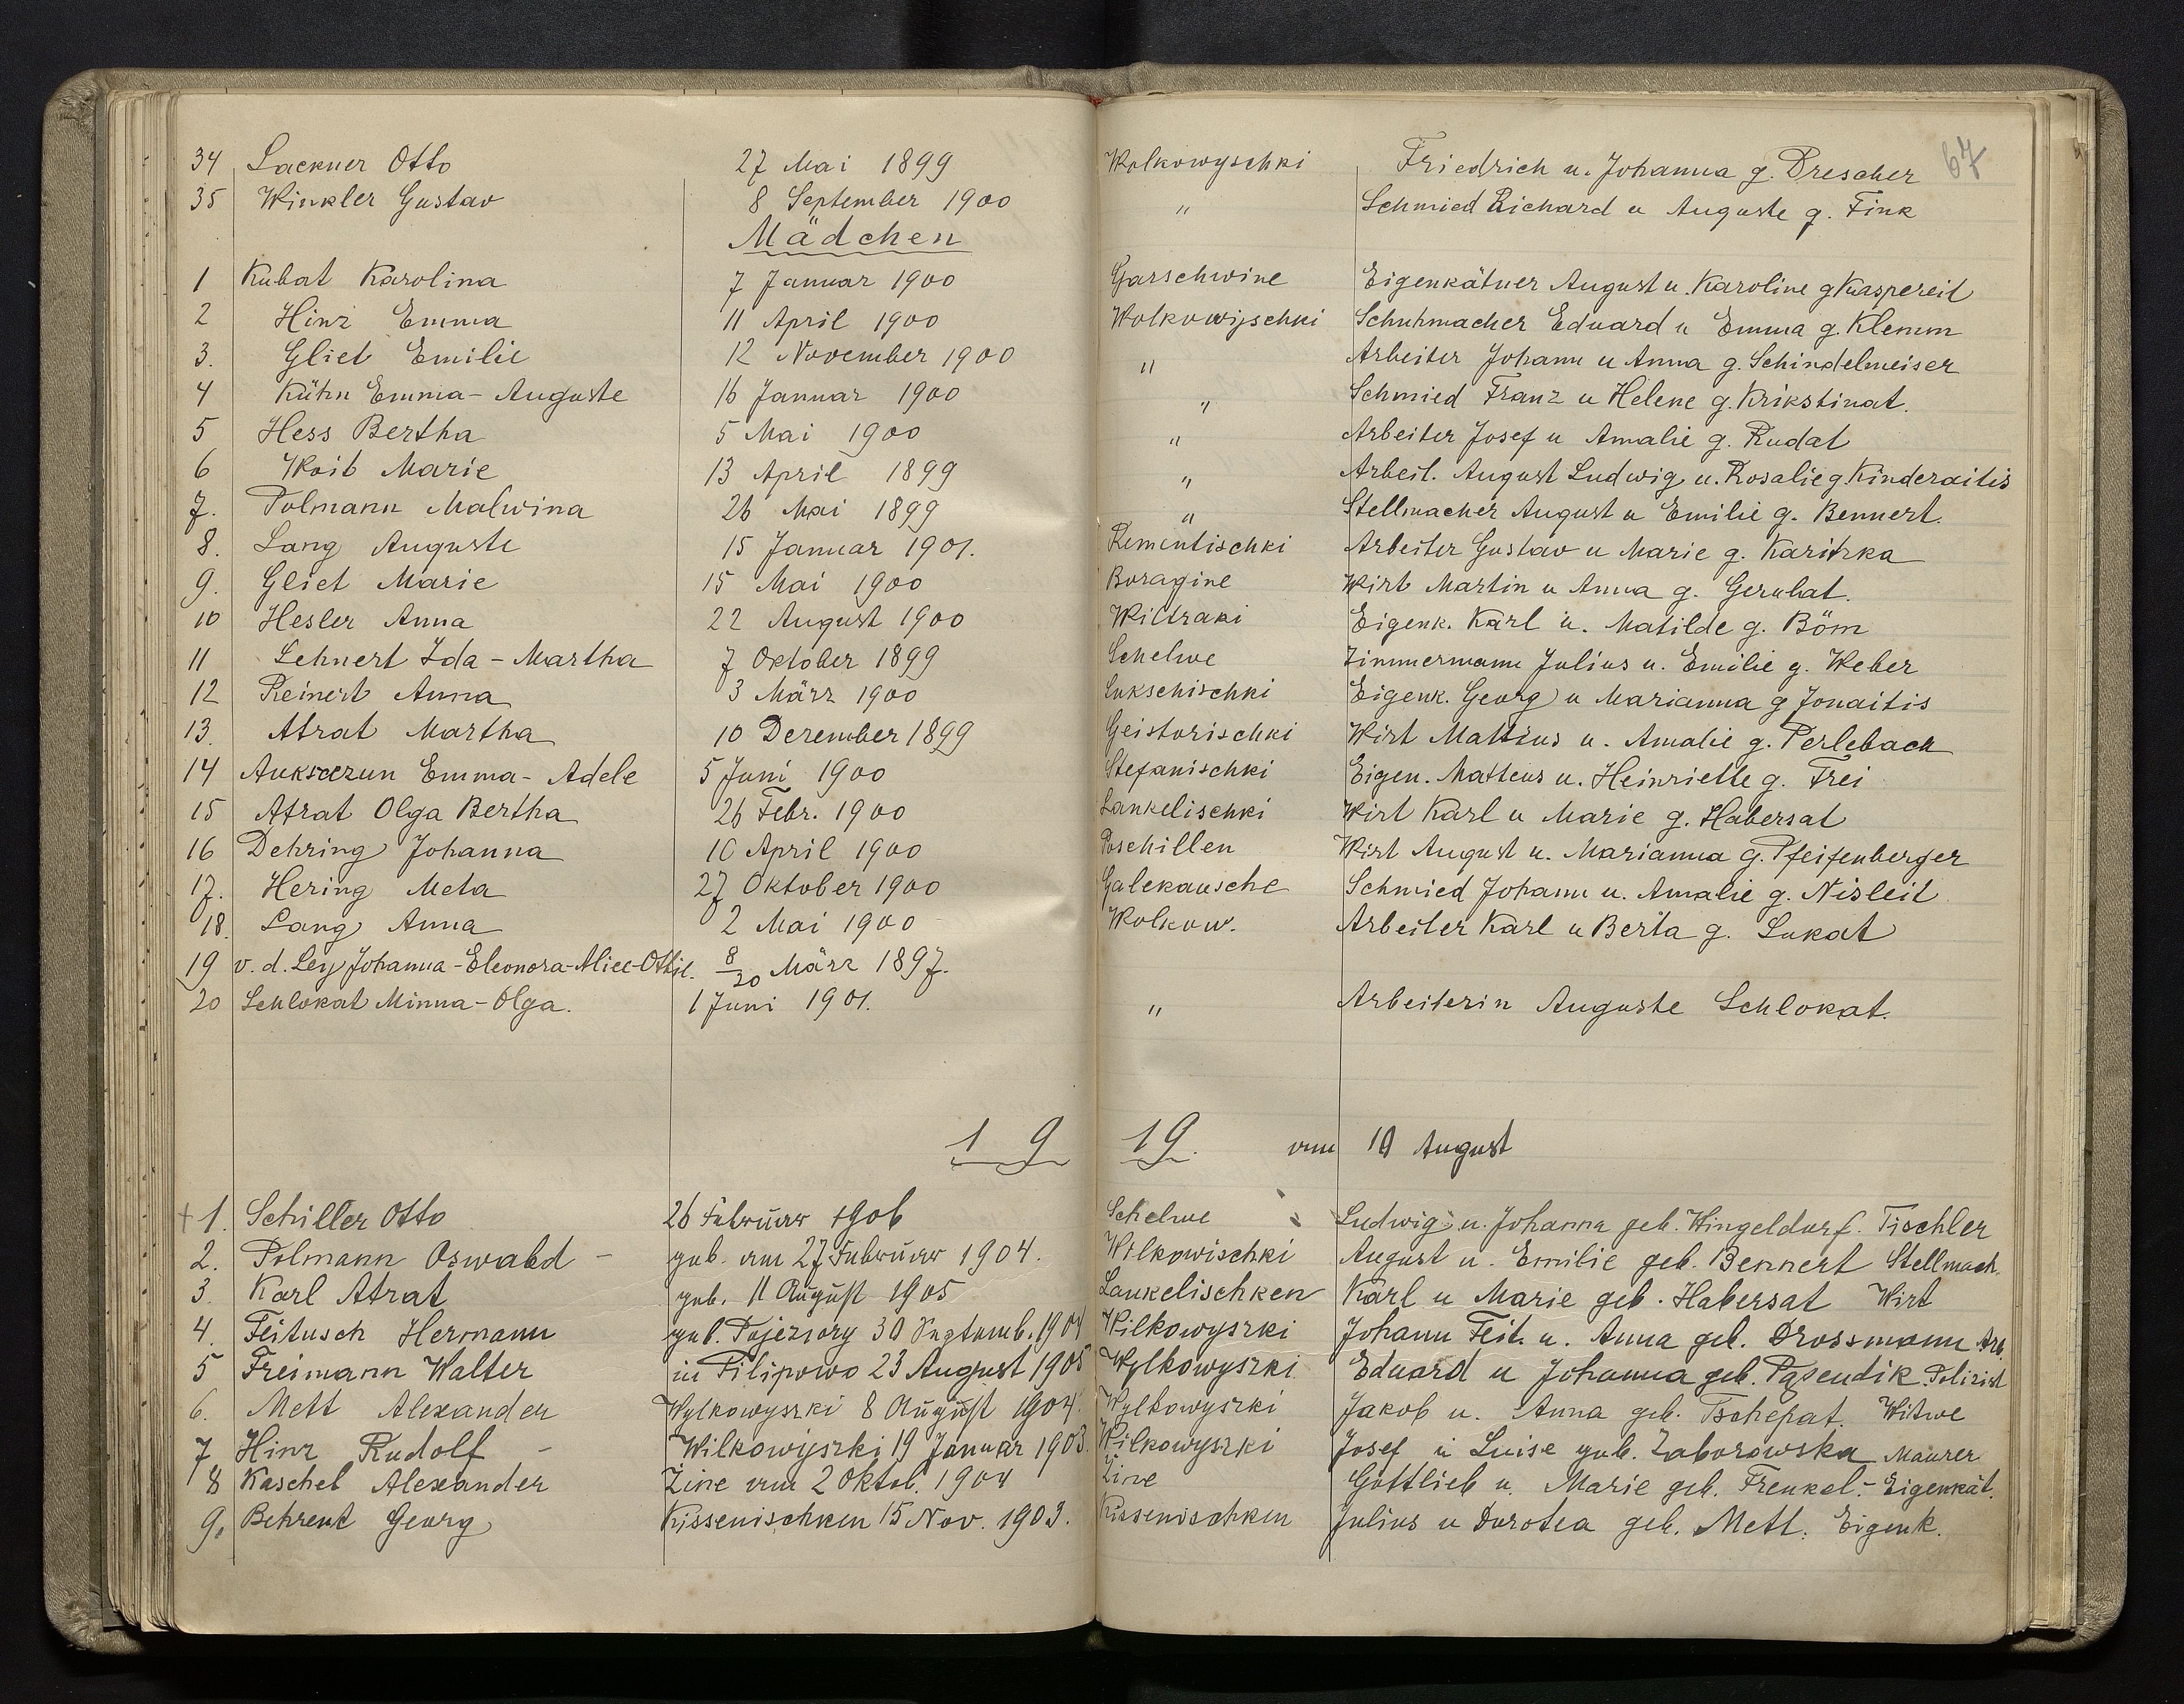 67
34 Lackner Otto 27 Mai 1899 Wolkowyschki Friedrich u. Johanna g. Drescher
35 Winkler Gustav 8 September 1900 " Schmied Richard u Auguste g. Fink
Mädchen
1 Kubat Karolina 7 Januar 1900 Garschwine Eigenkätner August u. Karoline g Kaspereit
2 Hinz Emma 11 April 1900 Wolkowyschki Schuhmacher Eduard u Emma g. Klemm
3. Gliet Emilie 12 November 1900 " Arbeiter Johann u Anna g. Schindelmeiser
4 Kühn Emma-Auguste 16 Januar 1900 " Schmied Franz u Helene g. Krikstinat.
5 Hess Bertha 5 Mai 1900 " Arbeiter Josef u Amalie g. Rudat
6 Woit Marie 13 April 1899 " Arbeit. August Ludwig u. Rosalie g. Kinderaitis
7. Polmann Malwina 26 Mai 1899 " Stellmacher August u Emilie g. Bennert.
8. Lang Auguste 15 Januar 1901. Rementischki Arbeiter Gustav u Marie g. Karitzka
9. Gliet Marie 15 Mai 1900 Boragine Wirt Martin u Anna g. Gerubat.
10 Hesler Anna 22 August 1900 Wiltraki Eigenk. Karl u. Matilde g. Böm
11 Lehnert Ida-Martha 7 Oktober 1899 Schelwe Zimmermann Julius u. Emilie g. Weber
12 Reinert Anna 3 März 1900 Lukschischki Eigenk. Georg u Marianna g Jonaitis
13. Atrat Martha 10 Dezember 1899 Geistorischki Wirt Mattius u. Amalie g. Perlebach
14 Emma-Adele 5 Juni 1900 Stefanischki Eigen. Matteus u. Heinriette g. Frei
15 Atrat Olga Bertha 26 Febr. 1900 Lankelischki Wirt Karl u Marie g. Habersat
16 Dehring Johanna 10 April 1900 Poschillen Wirt August u. Marianna g. Pfeifenberger
17. Hering Meta 27 Oktober 1900 Galekausche Schmied Johann u. Amalie g. Nisleit
18. Lang Anna 2 Mai 1900 Wolkow. Arbeiter Karl u Berta g. Lukat
19 v. d. Ley Johanna-Eleonora-Alice-Ottil. 8/20 März 1897.
20 Schlokat Minna-Olga. 1 Juni 1901. " Arbeiterin Auguste Schlokat.
19 19. am 10 August
+ 1. Schiller Otto 26 Februar 1906 Schelwe Ludwig u. Johanna geb. Wingeldorf. Tischler
2. Polmann Oswald - geb. am 27 Februar 1904. Wilkowischki August u. Emilie geb. Bennert Stellmach.
3. Karl Atrat geb. 11 August 1905 Lankelischken Karl u Marie geb. Habersat Wirt
4. Feitusch Hermann geb. Pojeziory 30 Septemb. 1904 Wilkowyszki Johann Feit. u. Anna geb. Drossmann Arb.
5 Freimann Walter in Filipowo 23 August 1905 Wylkowyszki Eduard u Johanna geb. Papendik. Polizist
6. Mett Alexander Wylkowyszki 8 August 1904. Wylkowyszki Jakob u. Anna geb. Tschepat. Witwe
7 Hinz Rudolf - Wilkowyszki 19 Januar 1903. Wilkowyszki Josef u Luise geb. Zaborowska Maurer
8 Kaschel Alexander Zine am 2 Oktob. 1904 Zine Gottlieb u. Marie geb. Frenkel.- Eigenkät.
9. Behrent Georg Kissenischken 15 Nov. 1903. Kissenischken Julius u Dorotea geb. Mett. Eigenk.